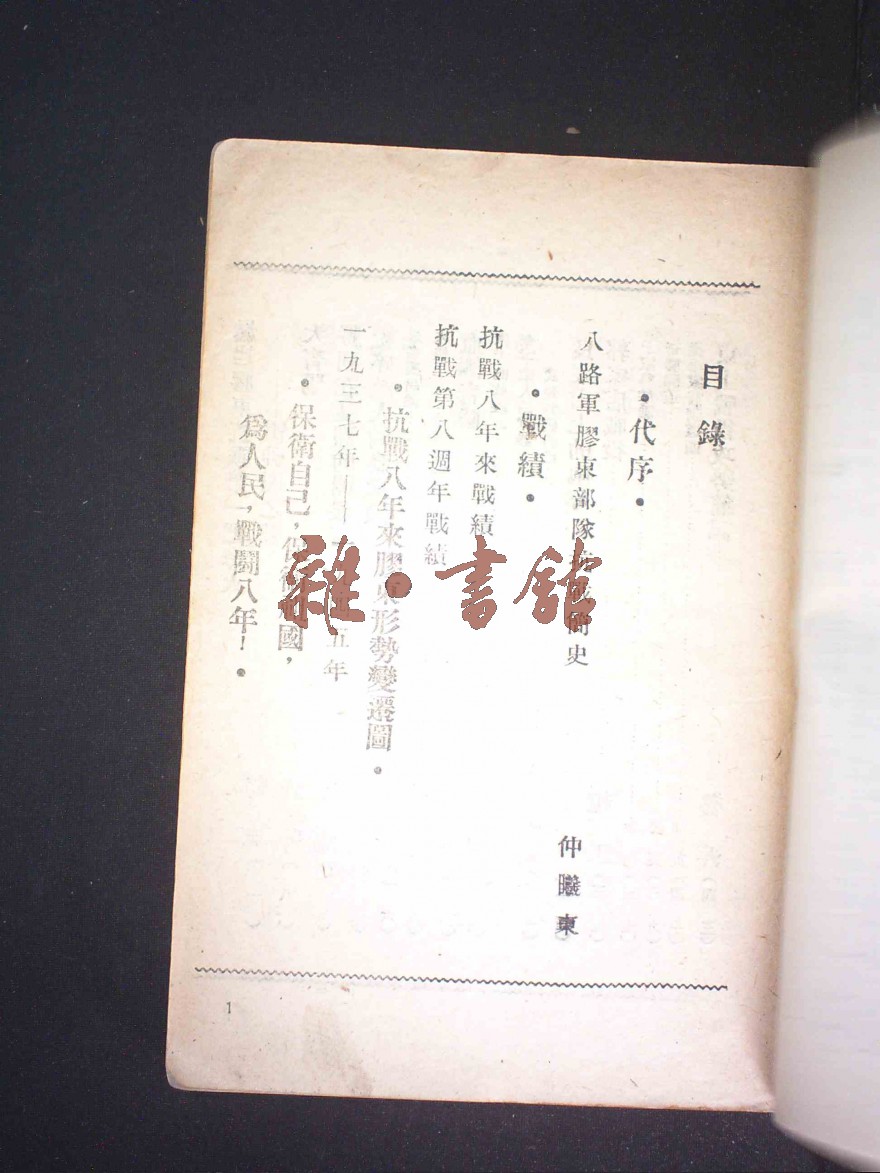 目錄
•代序•
八路軍膠東部隊抗戰簡史
仲曦東
•戰績•
抗戰八年來戰績
抗戰第八週年戰績
•抗戰八年來膠東形勢變遷圖•
一九三七年——一九四五年
•保衛自己，保衛祖國，
爲人民，戰鬪八年！•
1
雜•書館